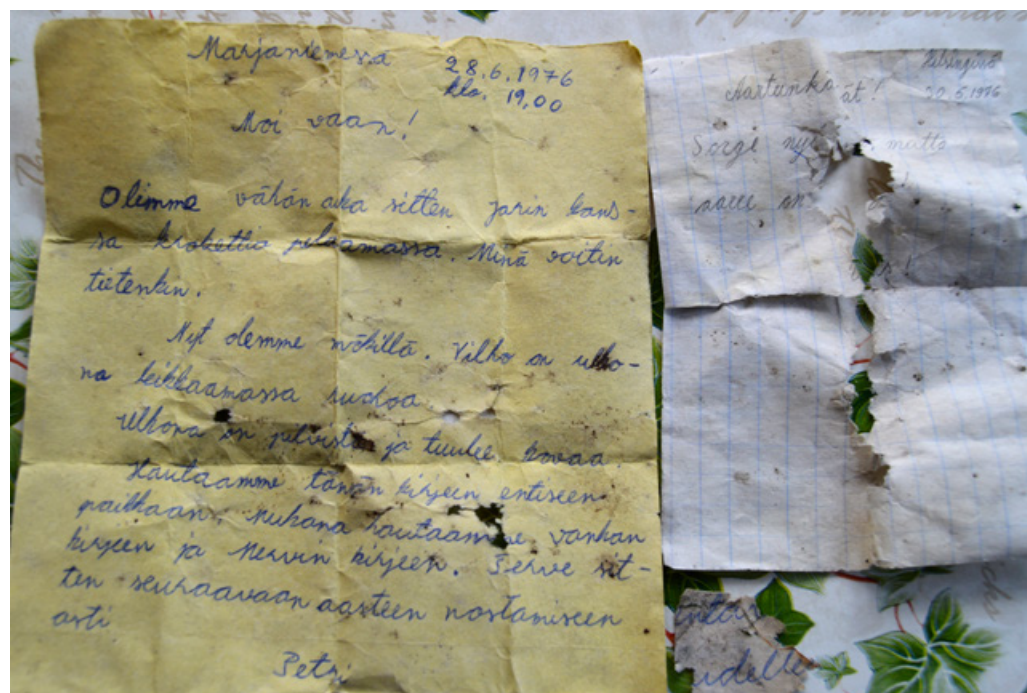 Marjaniemessä
28.6.1976
klo. 19,00
Moi vaan!
Olimme vähän aika sitten Jarin kans-
sa krokettia pelaamassa. Minä voitin
tietenkin.
Nyt olemme mökillä. Vilho on ulko-
na leikkaamassa ruohoa.
Ulkona on pilvistä ja tuulee kovaa.
Hautaamme tämän kirjeen entiseen
paikkaan. Mukana hautaamme vanhan
kirjeen ja Mervin kirjeen. Terve sit-
ten seuraavaan aarteen nostamiseen
asti
Petri
Helsingissä
30.5.1976
Aarteenka ät!
matto